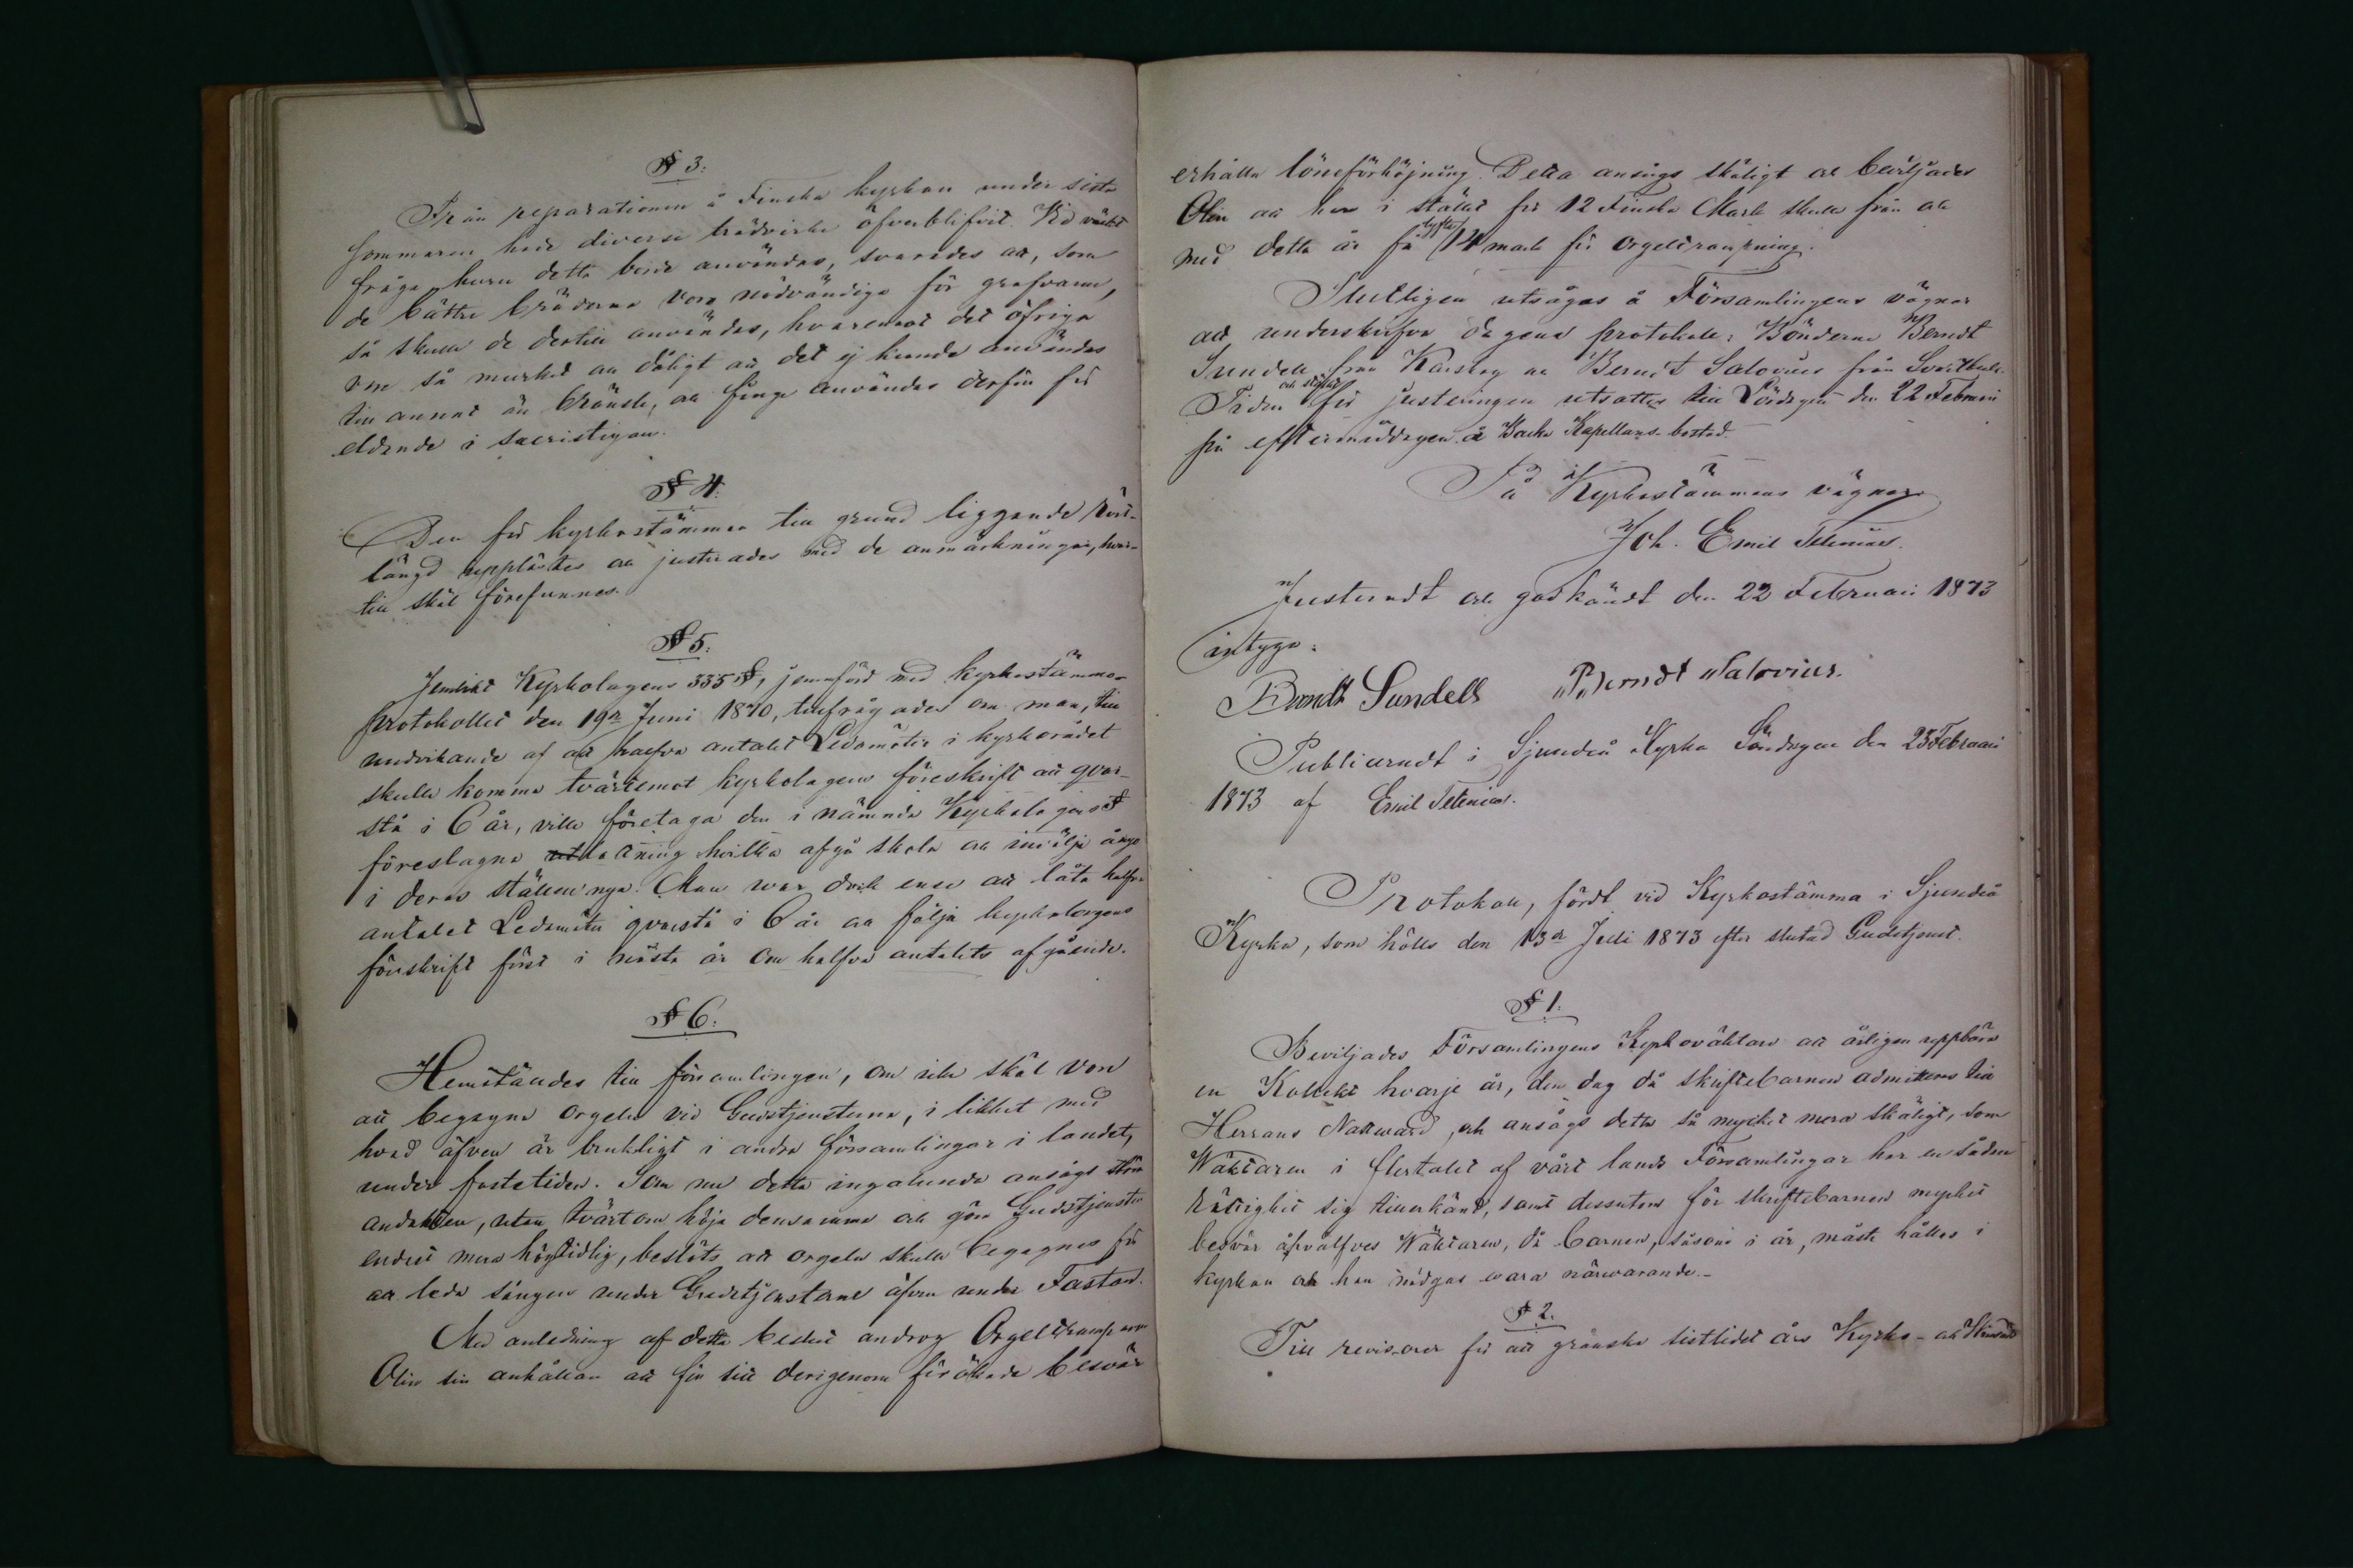 § 3:
Från reparationen å Finska kyrkan under sista
sommaren hade diverse trädvirke öfverblifvit. Vid väckt
fråga, huru detta borde användas, svarades att, som
de bättre bräderna voro nödvändiga för grafvarne,
så skulle de dertill användas, hvaremot det öfriga
vore så murket att dåligt att det ej kunde användas
till annat än bränsle, och finge användas derför för
eldande i sacristigan.
§ 4.
Den för kyrkostämman till grund liggande röst-
längd upplästes och justerades med de anmärkningar, hvar-
till skäl förefunnos.
§ 5.
Jemlikt Kyrkolagens 335 §, jemnförd med kyrkostämmo-
protokollet den 19de Juni 1870, tillfrågades om man, till
undvikande af att halfva antalet Ledamöter i kyrkorådet
skulle komma tvärtemot kyrkolagens föreskrift att qvar-
stå i 6 år, ville företaga den i nämnda Kyrkolagens §
föreslagna lottning hvilka afgå skola och invälja ånyo
i deras ställen nya. Man war dock ense att låta halfva
antalet Ledamöter qvarstå i 6 år och följa kyrkolagens
föreskrift först i nästa år om halfva antalets afgående.
§ 6.
Hemställdes till församlingen, om icke skäl vore
att begagna orgeln vid Gudstjensterna, i likhet med
hvad äfven är brukligt i andra församlingar i landet,
under fastetiden. Som nu detta ingalunda ansågs störa
andakten, utan tvärtom höja densamma och göra Gudstjensten
endast mera högtidlig, beslöts att orgeln skulle begagnas för
att leda sången under Gudstjensterne äfven under Fastan.
Med anledning af detta beslut androg Orgeltramparen
Olin sin anhållan att för sitt derigenom förökade besvär
erhålla löneförhöjning. Detta ansågs skäligt och beviljades
Olin att han i stället för 12 Finska Mark skulle från och
med detta år få lyfta 14 mark för orgeltrampning.
Slutligen utsågos å Församlingens vägnar
att underskrifva dagens protokoll: Bönderne Berndt
Sundell från Karskog och Berndt Salovius från Svartbäck.
Tiden och stället för justeringen utsattes till Lördagen den 22 Februari
på eftermiddagen å Backa Kapellans-bostad.
På Kyrkostämmans vägnar
Joh. Emil Telenius.
Justeradt och godkändt den 22 Februari 1873
intyga:
Berndt Sundell Berndt Salovius.
Publiceradt i Sjundeå Kyrka Söndagen den 23 Februari
1873 af Emil Telenius.
Protokoll, fördt vid Kyrkostämma i Sjundeå
Kyrka, som hölls den 13de Juli 1873 efter slutad Gudstjenst.
§ 1.
Beviljades Församlingens Kyrkoväktare att årligen uppbära
en Kollekt hvarje år, den dag då skriftebarnen admitteras till
Herrans Nattward, och ansågs detta så mycket mera skäligt, som
Wäktaren i flertalet af vårt lands Församlingar har en sådan
rättighet sig tillerkänd, samt dessutom för skriftebarnen mycket
besvär åhvälfves Wäktaren, då barnen, såsom i år, måste hållas i
kyrkan och han nödgas wara närwarande.
§ 2.
Till revisorer för att granska sistlidet års Kyrko- och